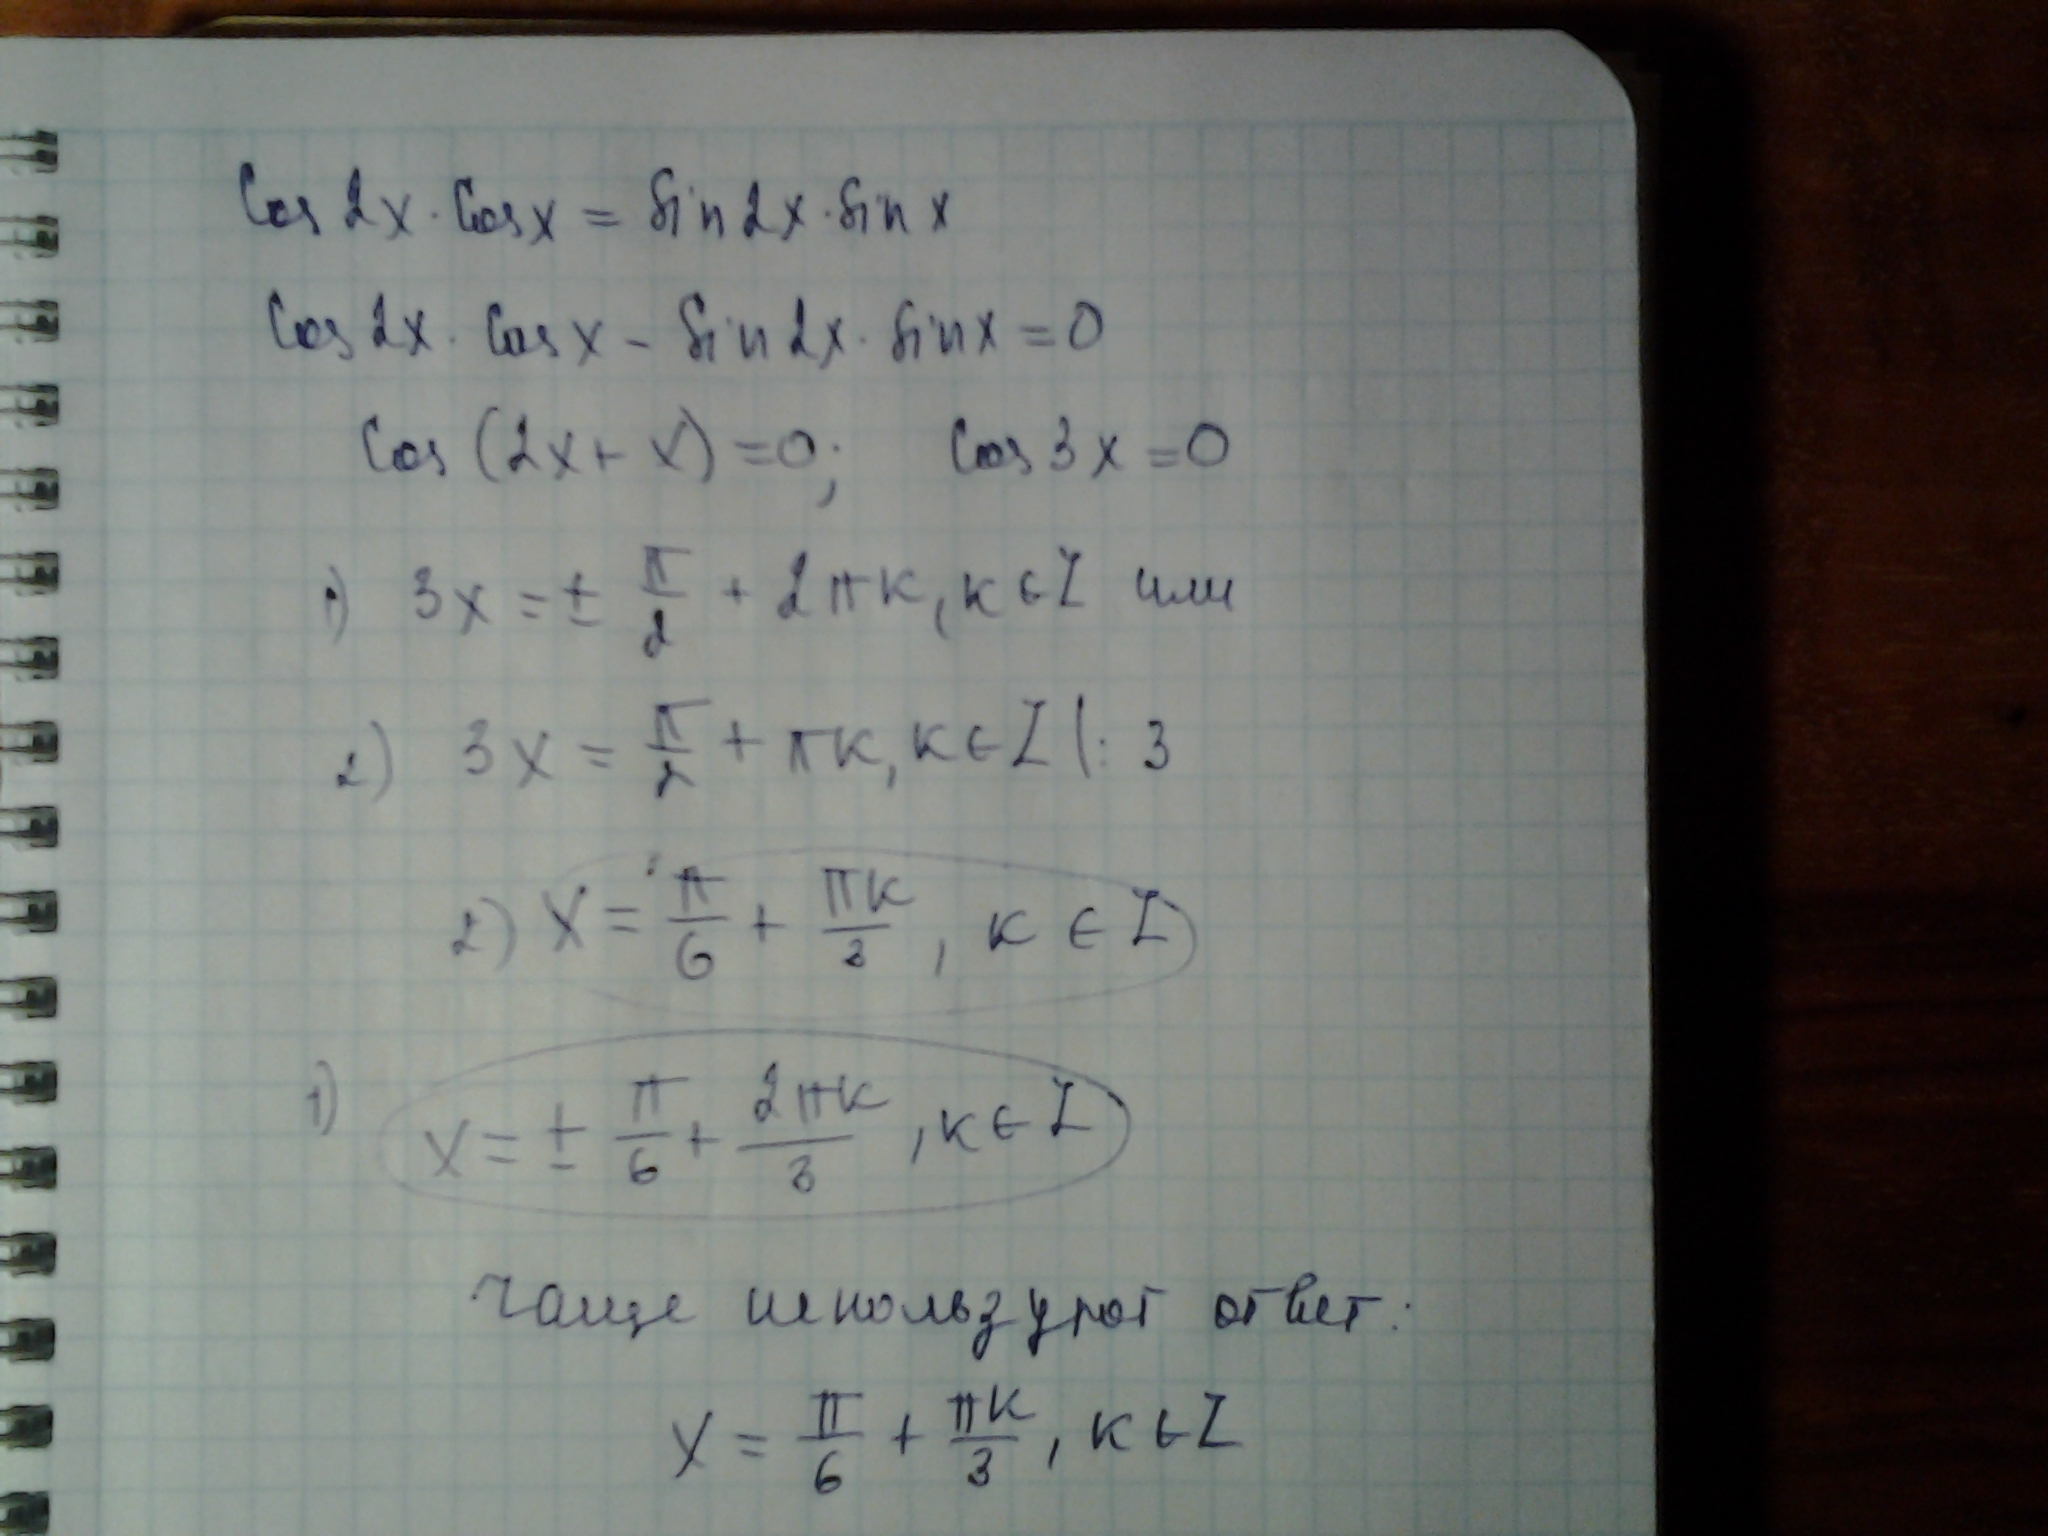 cos 2x · cos x = sin 2x · sin x
cos 2x · cos x - sin 2x · sin x = 0
cos (2x + x) = 0; cos 3x = 0
1) 3x = ± π/2 + 2πк, к ∈ Z или
2) 3x = π/2 + πк, к ∈ Z |: 3
2) x = π/6 + πк/3, к ∈ Z
1) x = ± π/6 + 2πк/3, к ∈ Z
Чаще используют ответ:
x = π/6 + πк/3, к ∈ Z